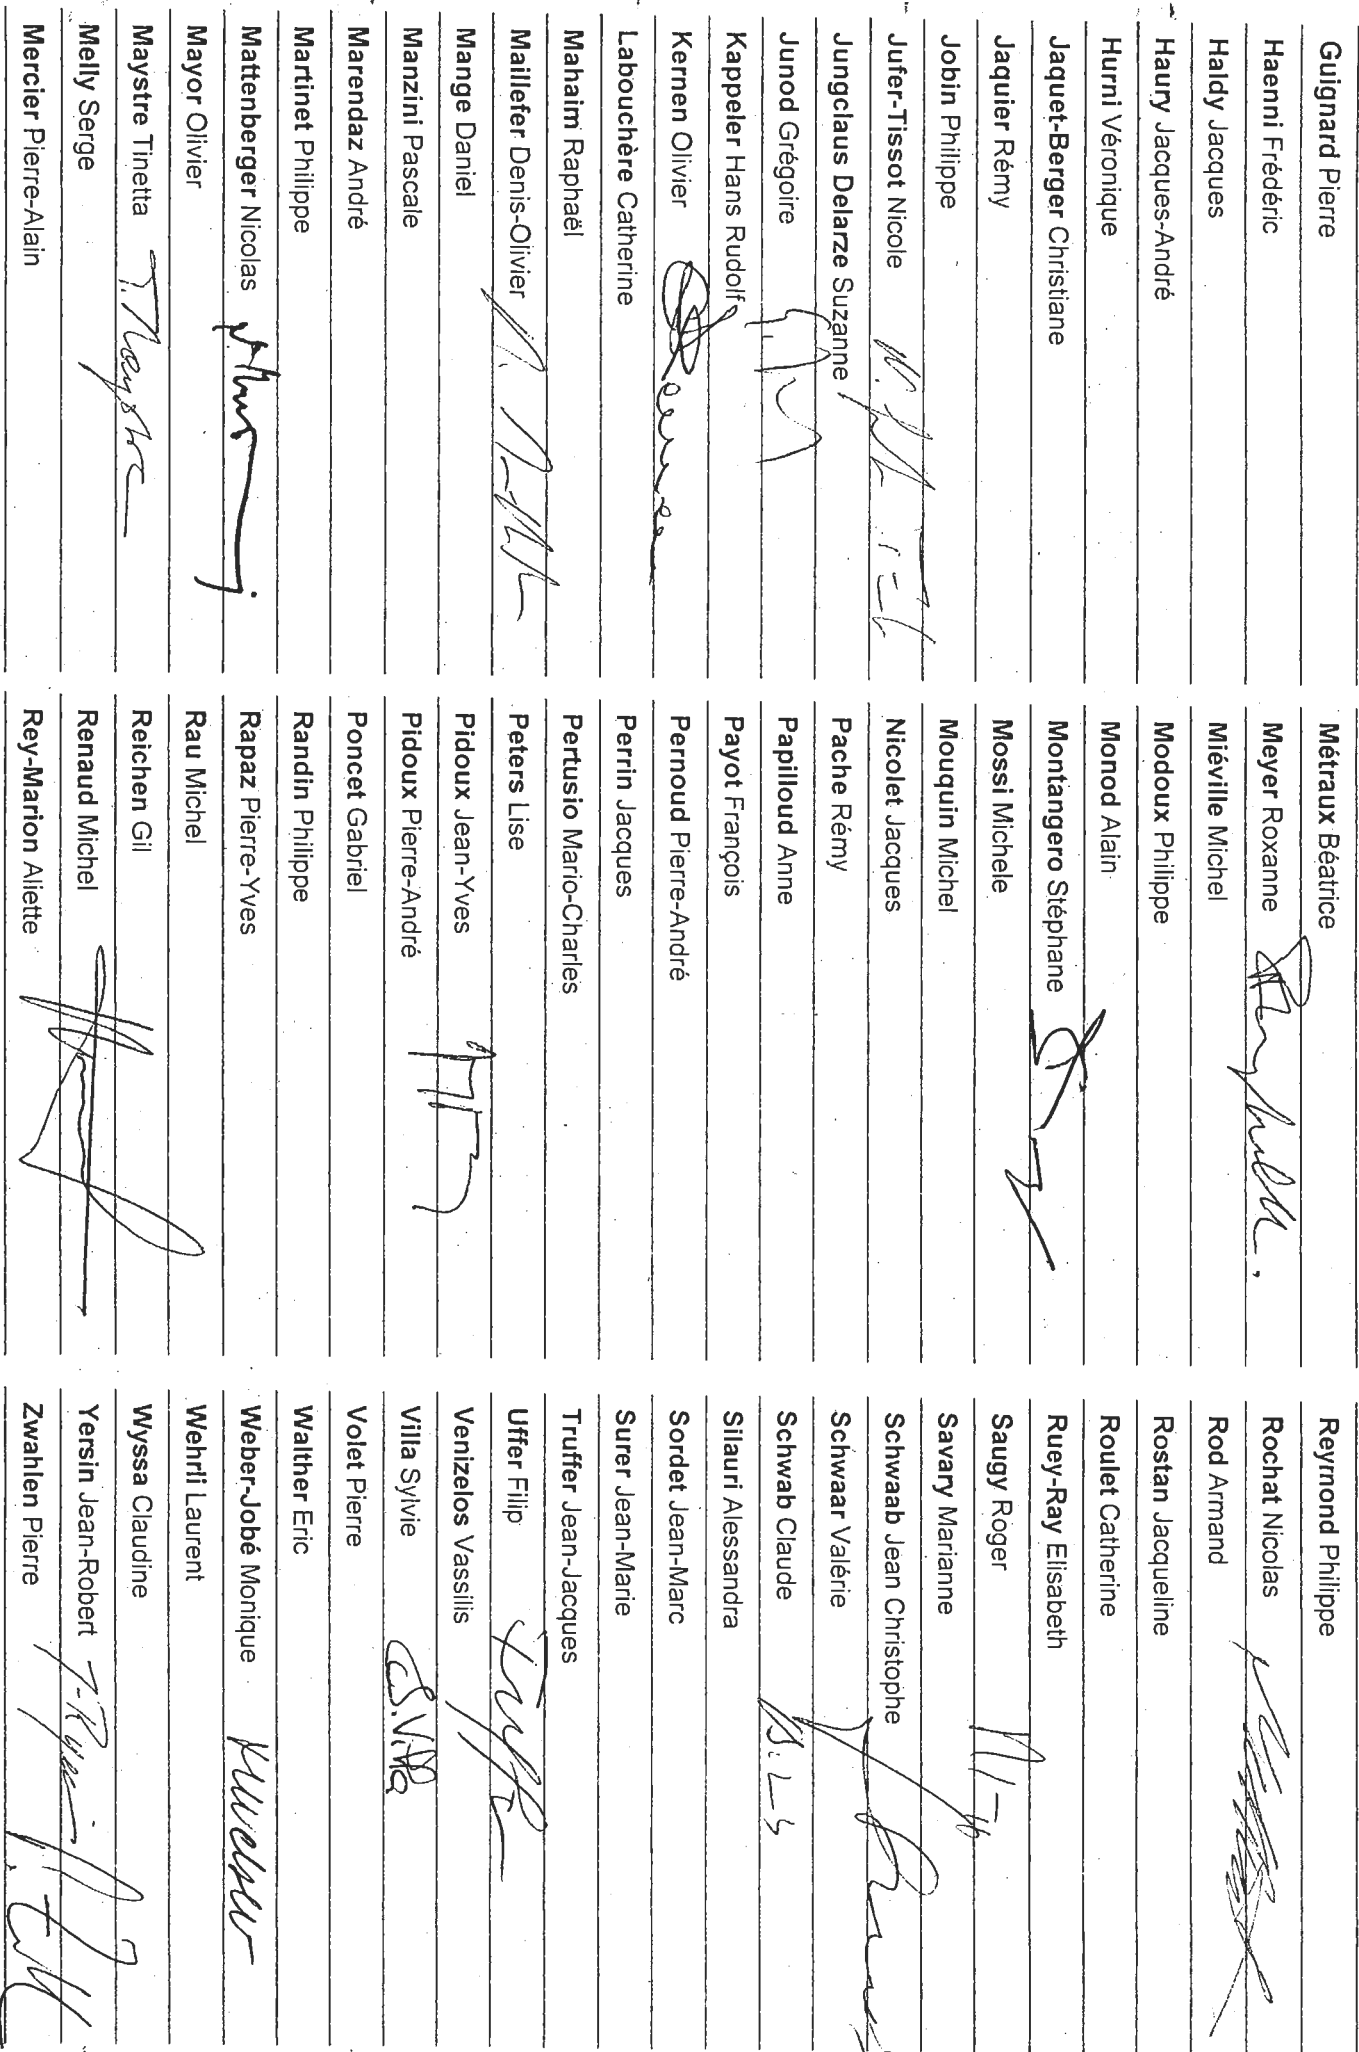 Guignard Pierre
Haenni Frédéric
Haldy Jacques
Haury Jacques-André
Hurni Véronique
Jaquet-Berger Christiane
Jaquier Rémy
Jobin Philippe
Jufer-Tissot Nicole
Jungclaus Delarze Suzanne
Junod Grégoire
Kappeler Hans Rudolf
Kernen Olivier
Labouchère Catherine
Mahaim Raphaël
Maillefer Denis-Olivier
Mange Daniel
Manzini Pascale
Marendaz André
Martinet Philippe
Mattenberger Nicolas
Mayor Olivier
Maystre Tinetta T. Maystre
Melly Serge
Mercier Pierre-Alain
Métraux Béatrice
Meyer Roxanne
Miéville Michel
Modoux Philippe
Monod Alain
Montangero Stéphane
Mossi Michele
Mouquin Michel
Nicolet Jacques
Pache Rémy
Papilloud Anne
Payot François
Pernoud Pierre-André
Perrin Jacques
Pertusio Mario-Charles
Peters Lise
Pidoux Jean-Yves
Pidoux Pierre-André
Poncet Gabriel
Randin Philippe
Rapaz Pierre-Yves
Rau Michel
Reichen Gil
Renaud Michel
Rey-Marion Aliette
Reymond Philippe
Rochat Nicolas
Rod Armand
Rostan Jacqueline
Roulet Catherine
Ruey-Ray Elisabeth
Saugy Roger
Savary Marianne
Schwaab Jean Christophe
Schwaar Valérie
Schwab Claude
Silauri Alessandra
Sordet Jean-Marc
Surer Jean-Marie
Truffer Jean-Jacques
Uffer Filip
Venizelos Vassilis
Villa Sylvie S. Villa
Volet Pierre
Walther Eric
Weber-Jobé Monique
Wehrli Laurent
Wyssa Claudine
Yersin Jean-Robert
Zwahlen Pierre